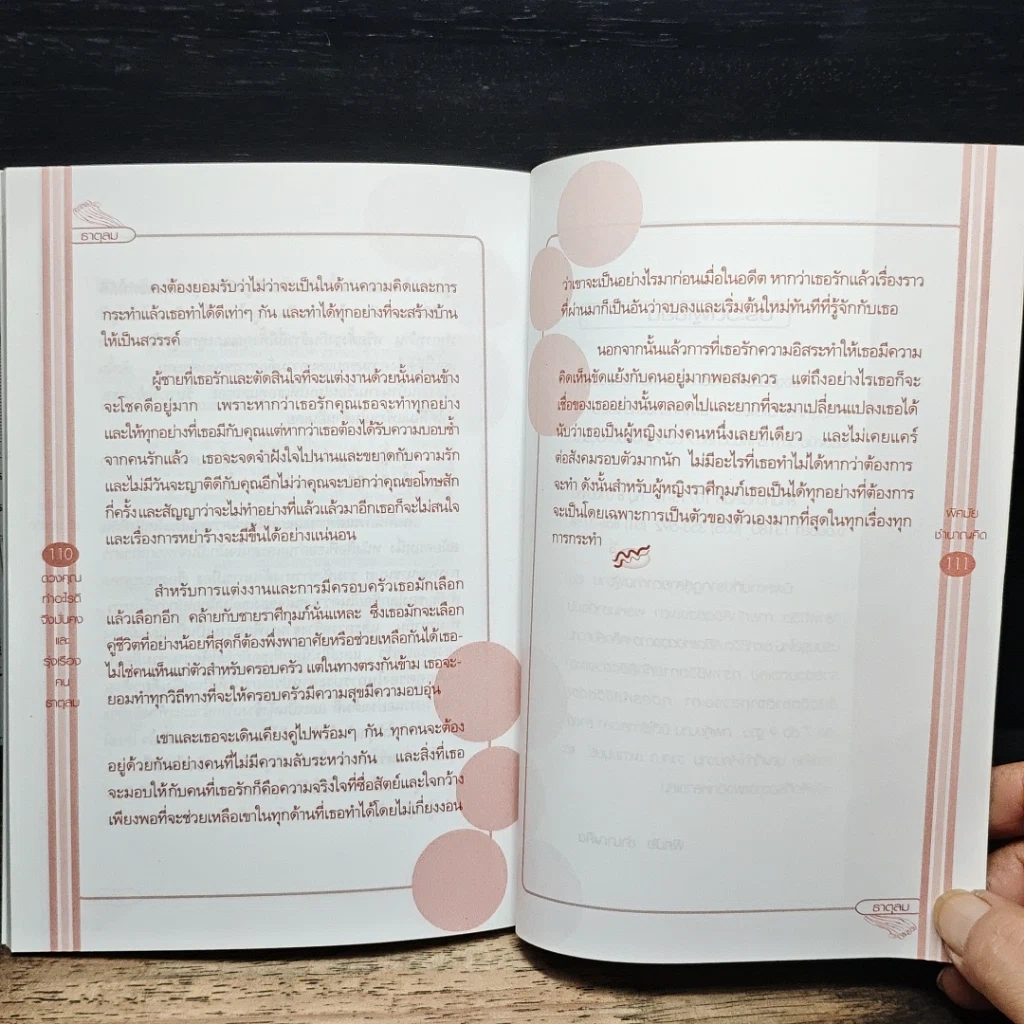 ธาตุลม
คงต้องยอมรับว่าไม่ว่าจะเป็นในด้านความคิดและการ
กระทำแล้วเธอทำได้ดีเท่าๆ กัน และทำได้ทุกอย่างที่จะสร้างบ้าน
ให้เป็นสวรรค์
ผู้ชายที่เธอรักและตัดสินใจที่จะแต่งงานด้วยนั้นค่อนข้าง
จะโชคดีอยู่มาก เพราะหากว่าเธอรักคุณเธอจะทำทุกอย่าง
และให้ทุกอย่างที่เธอมีกับคุณแต่หากว่าเธอต้องได้รับความบอบช้ำ
จากคนรักแล้ว เธอจะจดจำฝังใจไปนานและขยาดกับความรัก
และไม่มีวันจะญาติดีกับคุณอีกไม่ว่าคุณจะบอกว่าคุณขอโทษสัก
กี่ครั้ง และสัญญาว่าจะไม่ทำอย่างที่แล้วแล้วมาอีกเธอก็จะไม่สนใจ
และเรื่องการหย่าร้างจะมีขึ้นได้อย่างแน่นอน
สำหรับการแต่งงานและการมีครอบครัวเธอมักเลือก
แล้วเลือกอีก คล้ายกับชายราศีกุมภ์นั่นแหละ ซึ่งเธอมักจะเลือก
คู่ชีวิตที่อย่างน้อยที่สุดก็ต้องพึ่งพาอาศัยหรือช่วยเหลือกันได้เธอ-
ไม่ใช่คนเห็นแก่ตัวสำหรับครอบครัว แต่ในทางตรงกันข้าม เธอจะ-
ยอมทำทุกวิถีทางที่จะให้ครอบครัวมีความสุขมีความอบอุ่น
เขาและเธอจะเดินเคียงคู่ไปพร้อมๆ กัน ทุกคนจะต้อง
อยู่ด้วยกันอย่างคนที่ไม่มีความลับระหว่างกัน และสิ่งที่เธอ
จะมอบให้กับคนที่เธอรักก็คือความจริงใจที่ซื่อสัตย์และใจกว้าง
เพียงพอที่จะช่วยเหลือเขาในทุกด้านที่เธอทำได้โดยไม่เกี่ยงงอน
110
ดวงคุณ
ทำอะไรดี
จึงมั่นคง
และ
รุ่งเรือง
คน
ธาตุลม
ว่าเขาจะเป็นอย่างไรมาก่อนเมื่อในอดีต หากว่าเธอรักแล้วเรื่องราว
ที่ผ่านมาก็เป็นอันว่าจบลงและเริ่มต้นใหม่ทันทีที่รู้จักกับเธอ
นอกจากนั้นแล้วการที่เธอรักความอิสระทำให้เธอมีความ
คิดเห็นขัดแย้งกับคนอยู่มากพอสมควร แต่ถึงอย่างไรเธอก็จะ
เชื่อของเธออย่างนั้นตลอดไปและยากที่จะมาเปลี่ยนแปลงเธอได้
นับว่าเธอเป็นผู้หญิงเก่งคนหนึ่งเลยทีเดียว และไม่เคยแคร์
ต่อสังคมรอบตัวมากนัก ไม่มีอะไรที่เธอทำไม่ได้หากว่าต้องการ
จะทำ ดังนั้นสำหรับผู้หญิงราศีกุมภ์เธอเป็นได้ทุกอย่างที่ต้องการ
จะเป็นโดยเฉพาะการเป็นตัวของตัวเองมากที่สุดในทุกเรื่องทุก
การกระทำ
พิศมัย
ชำนาญคิด
111
ธาตุลม